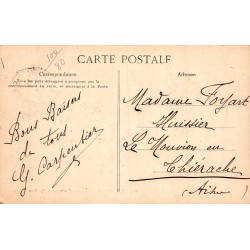 CARTE POSTALE
Correspondance
Adresse
Tous les pays étrangers n'acceptent pas la
correspondance au recto, se renseigner à la Poste
Bons Baisers
de tous
G. Carpentier
Madame Foyart
Huissier
Le Nouvion en
Thiérache
(Aisne)